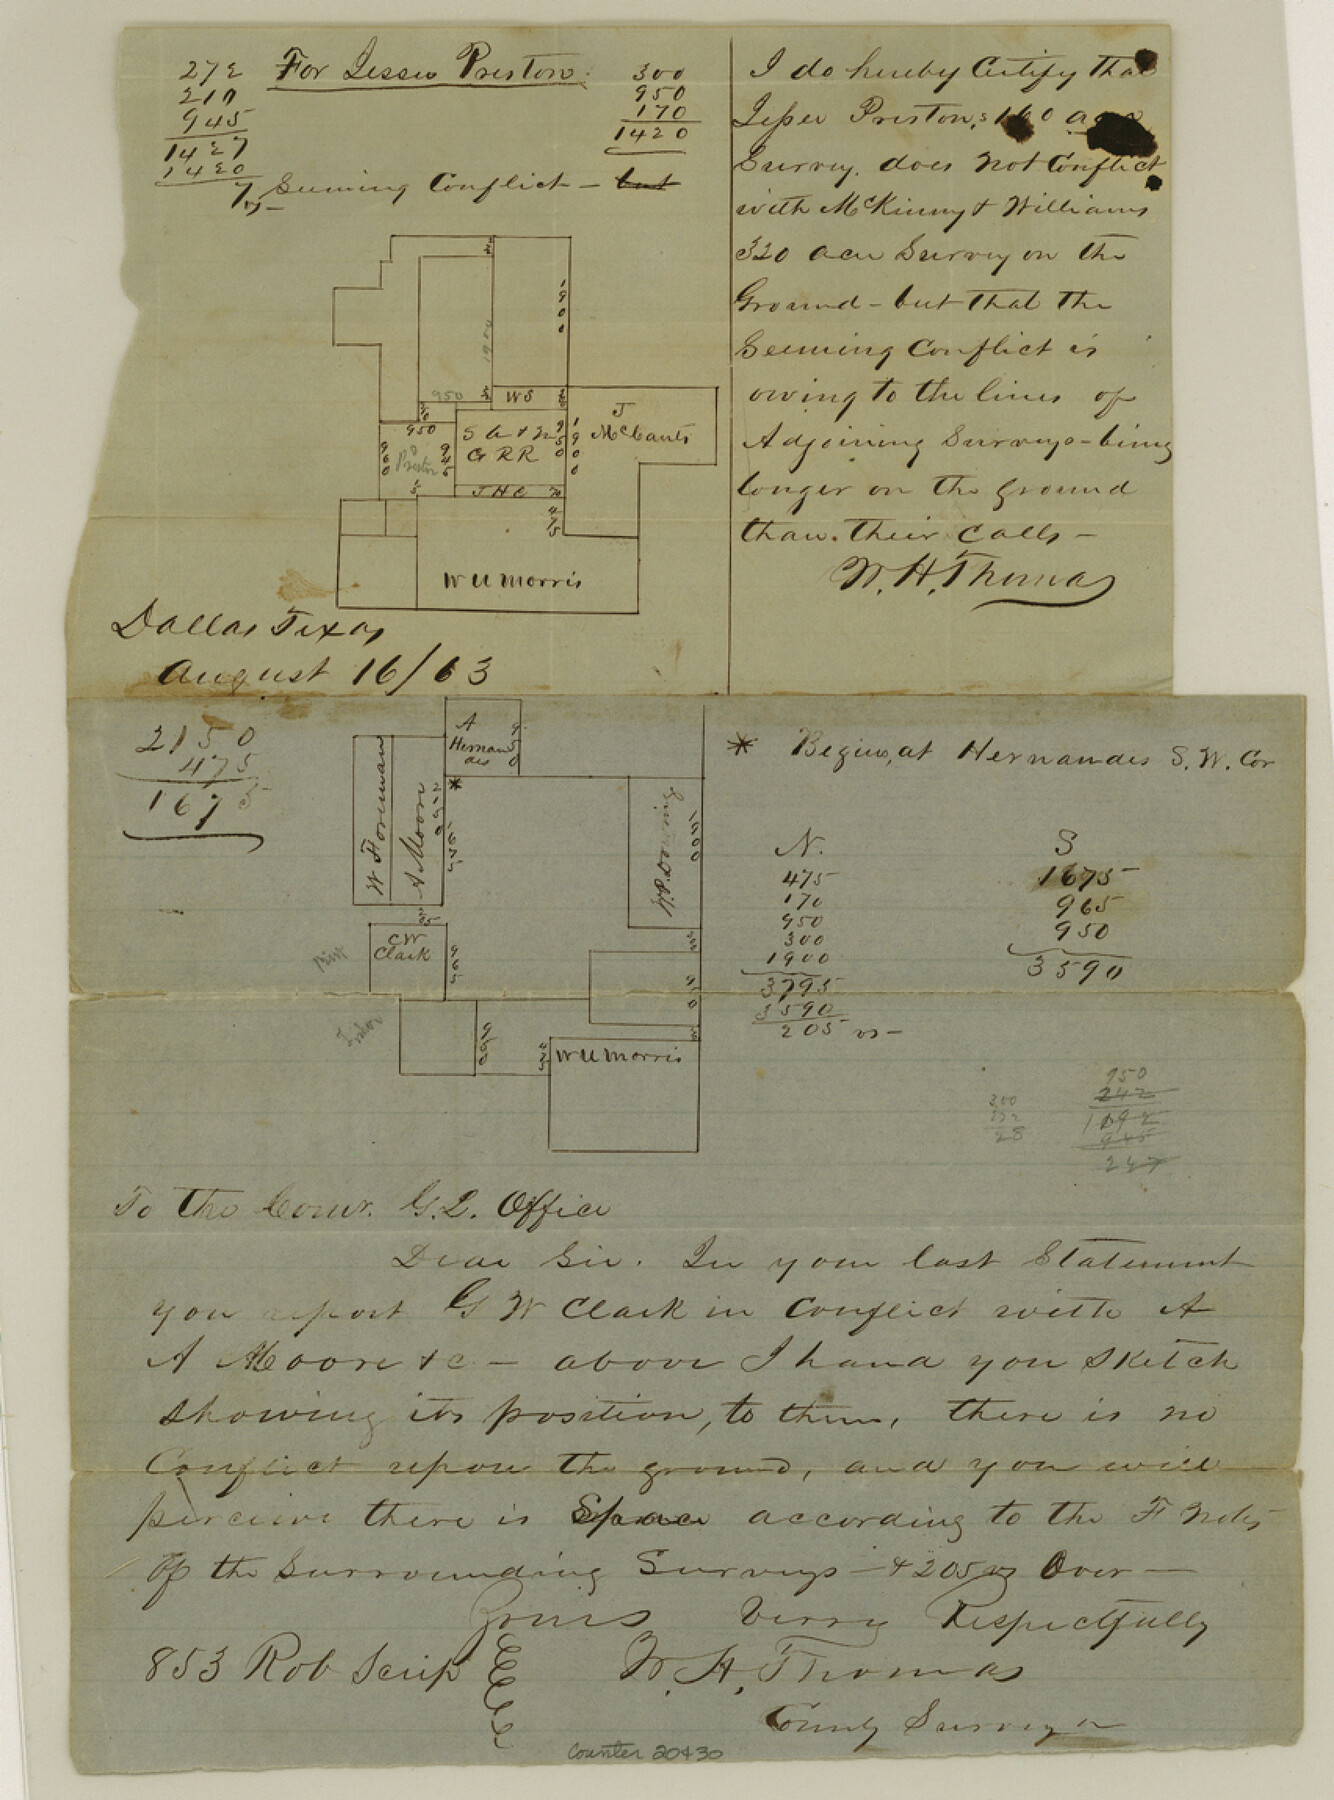 272
210
945
1427
1420
7 vs
For Jesse Preston
300
950
170
1420
Seeming Conflict - but
1900
1900
950
W S
J
McCants
950
S A & M
G R R
950
1900
960
P
Preston
945
J H C
475
W U Morris
Dallas Texas
August 16/63
I do hereby Certify that
Jesse Preston,s 160 acre
Survey. does not Conflict
with McKinny & Williams
320 acre Survey on the
Ground - but that the
Seeming Conflict is
owing to the lines of
Adjoining Surveys - being
longer on the ground
than their calls -
W. H. Thomas
2150
475
1675
A
Hernan
des
950
W Foreman
A Moore
1675
W.P. Downing
1900
205
CW
Clark
965
950
475
W U Morris
* Begins, at Hernandes S. W. Cor
N.
475
170
950
300
1900
3795
3590
205 vs -
S
1675
965
950
3590
300
272
28
950
242
1192
945
247
To the Comr. G. L. Office
Dear Sir. In your last Statement
you report G W Clark in Conflict with A
A Moore & c - above I hand you sketch
showing its position, to them, there is no
Conflict upon the ground, and you will
perceive there is Space according to the F Notes
of the Surrounding Surveys - & 205 vs Over -
Yours Verry Respectfully
853 Rob Scrip
W. H. Thomas
County Surveyor
Counter 20430